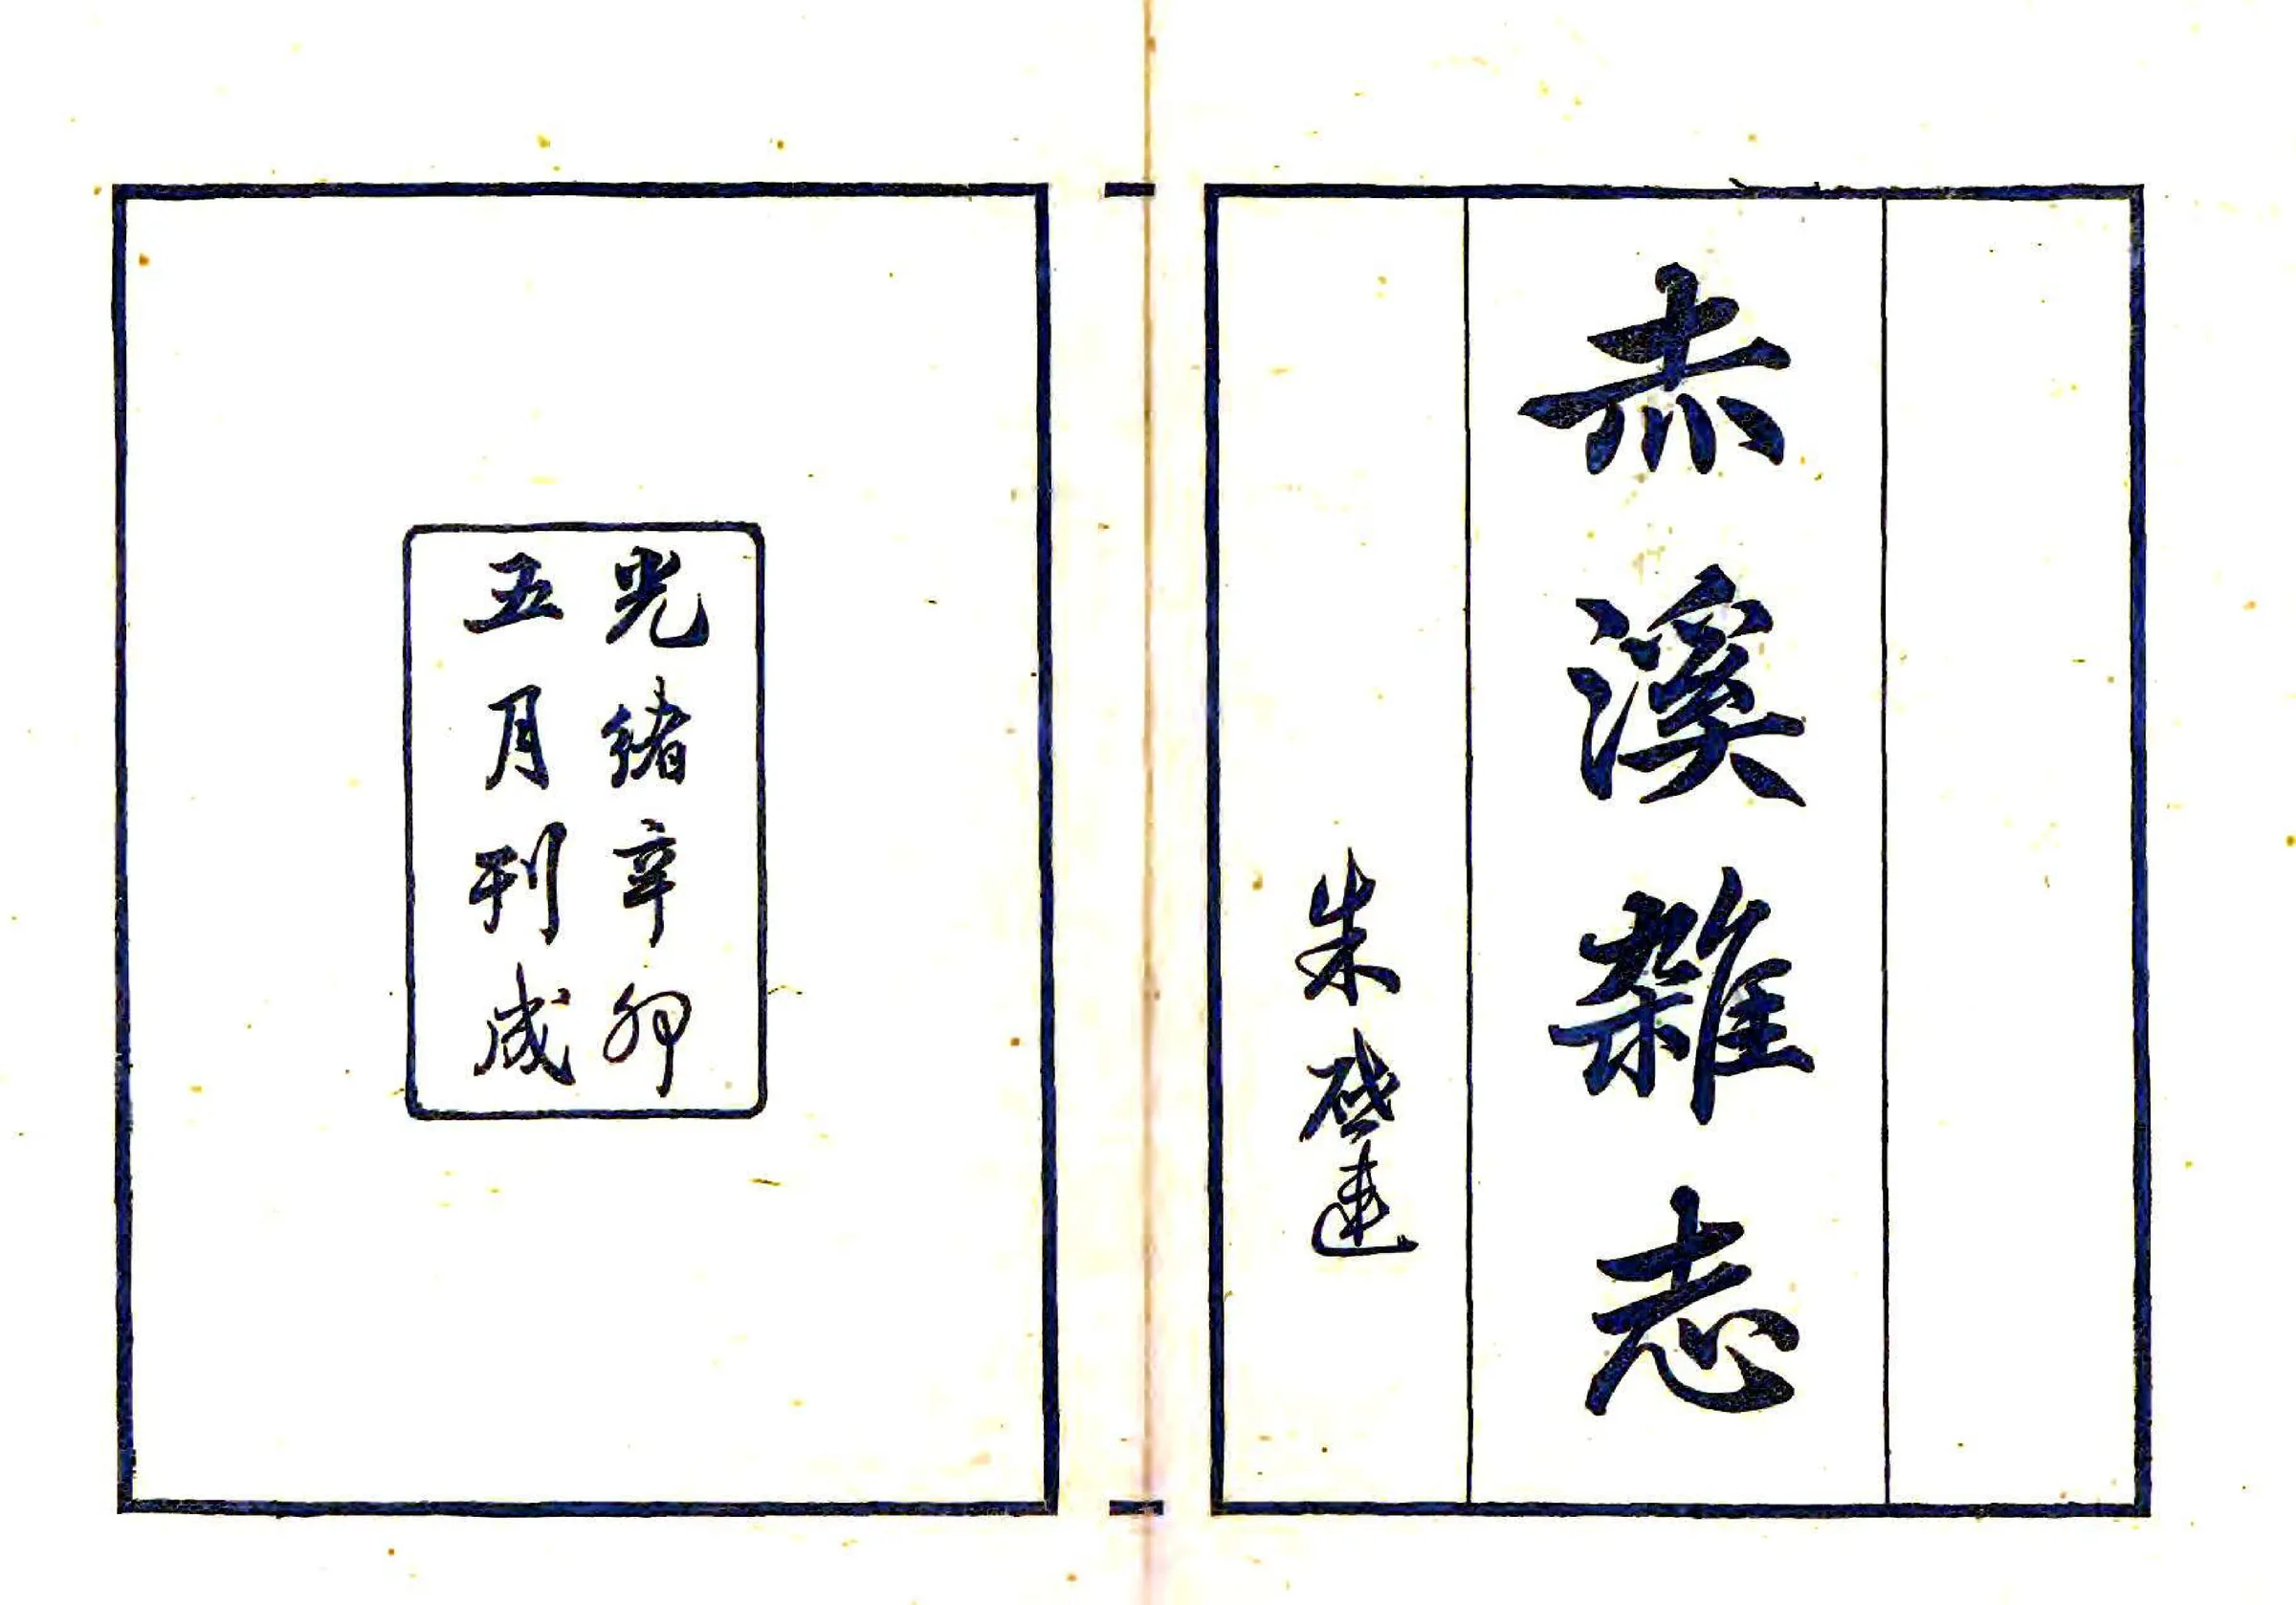 赤溪雜志
朱啓連
光緒辛卯
五月刊成